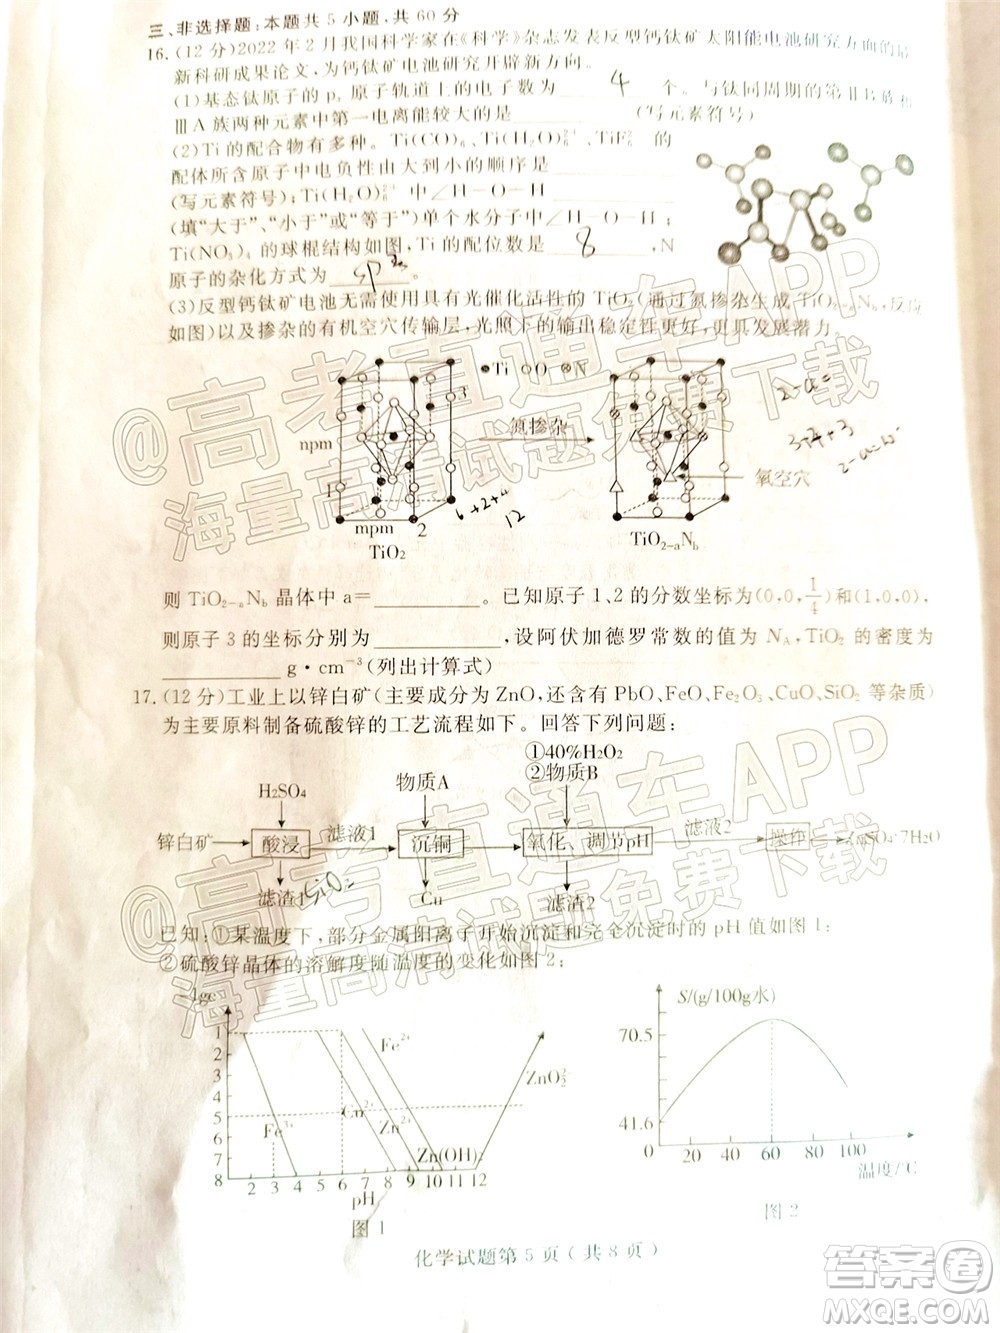 三、非选择题：本题共5小题，共60分
16.(12分)2022年2月我国科学家在《科学》杂志发表反型钙钛矿太阳能电池研究方面的最
新科研成果论文，为钙钛矿电池研究开辟新方向。
(1)基态钛原子的p，原子轨道上的电子数为 4 个。与钛同周期的第ⅡB族和
ⅢA族两种元素中第一电离能较大的是 (写元素符号)
(2)Ti的配合物有多种。Ti(CO)₆、Ti(H₂O)₆³⁺、TiF₆²⁻的
配体所含原子中电负性由大到小的顺序是
(写元素符号)；Ti(H₂O)₆³⁺中∠H-O-H
(填"大于"、"小于"或"等于")单个水分子中∠H-O-H；
Ti(NO₃)₄的球棍结构如图，Ti的配位数是 8 ，N
原子的杂化方式为 sp²
(3)反型钙钛矿电池无需使用具有光催化活性的TiO₂(通过氮掺杂生成TiO₂₋ₐN_b，反应
如图)以及掺杂的有机空穴传输层，光照下的输出稳定性更好，更具发展潜力。
●Ti ○O ⊗N
3
npm
氮掺杂
氧空穴
1
mpm 2
TiO₂
TiO₂₋ₐN_b
2-a=
6+2+4
12
则TiO₂₋ₐN_b晶体中a= 。已知原子1、2的分数坐标为(0,0,1/4)和(1,0,0)，
则原子3的坐标分别为 ，设阿伏加德罗常数的值为N_A,TiO₂的密度为
g·cm⁻³(列出计算式)
17.(12分)工业上以锌白矿(主要成分为ZnO，还含有PbO、FeO、Fe₂O₃、CuO、SiO₂等杂质)
为主要原料制备硫酸锌的工艺流程如下。回答下列问题：
①40%H₂O₂
②物质B
H₂SO₄
物质A
锌白矿 酸浸 滤液1 沉铜 氧化、调节pH 滤液2 操作 ZnSO₄·7H₂O
滤渣1 SiO₂
Cu
滤渣2
已知：①某温度下，部分金属阳离子开始沉淀和完全沉淀时的pH值如图1；
②硫酸锌晶体的溶解度随温度的变化如图2；
-lgc
1
2
3
4
5
6
7
8
Fe³⁺
Cu²⁺
Fe²⁺
Zn²⁺
Zn(OH)₂
ZnO₂²⁻
1 2 3 4 5 6 7 8 9 10 11 12
pH
图1
S/(g/100g水)
70.5
41.6
0 20 40 60 80 100
温度/℃
图2
化学试题第5页(共8页)
@高考直通车APP
海量高清试题免费下载
@高考直通车APP
海量高清试题免费下载
答案圈
MXQE.COM